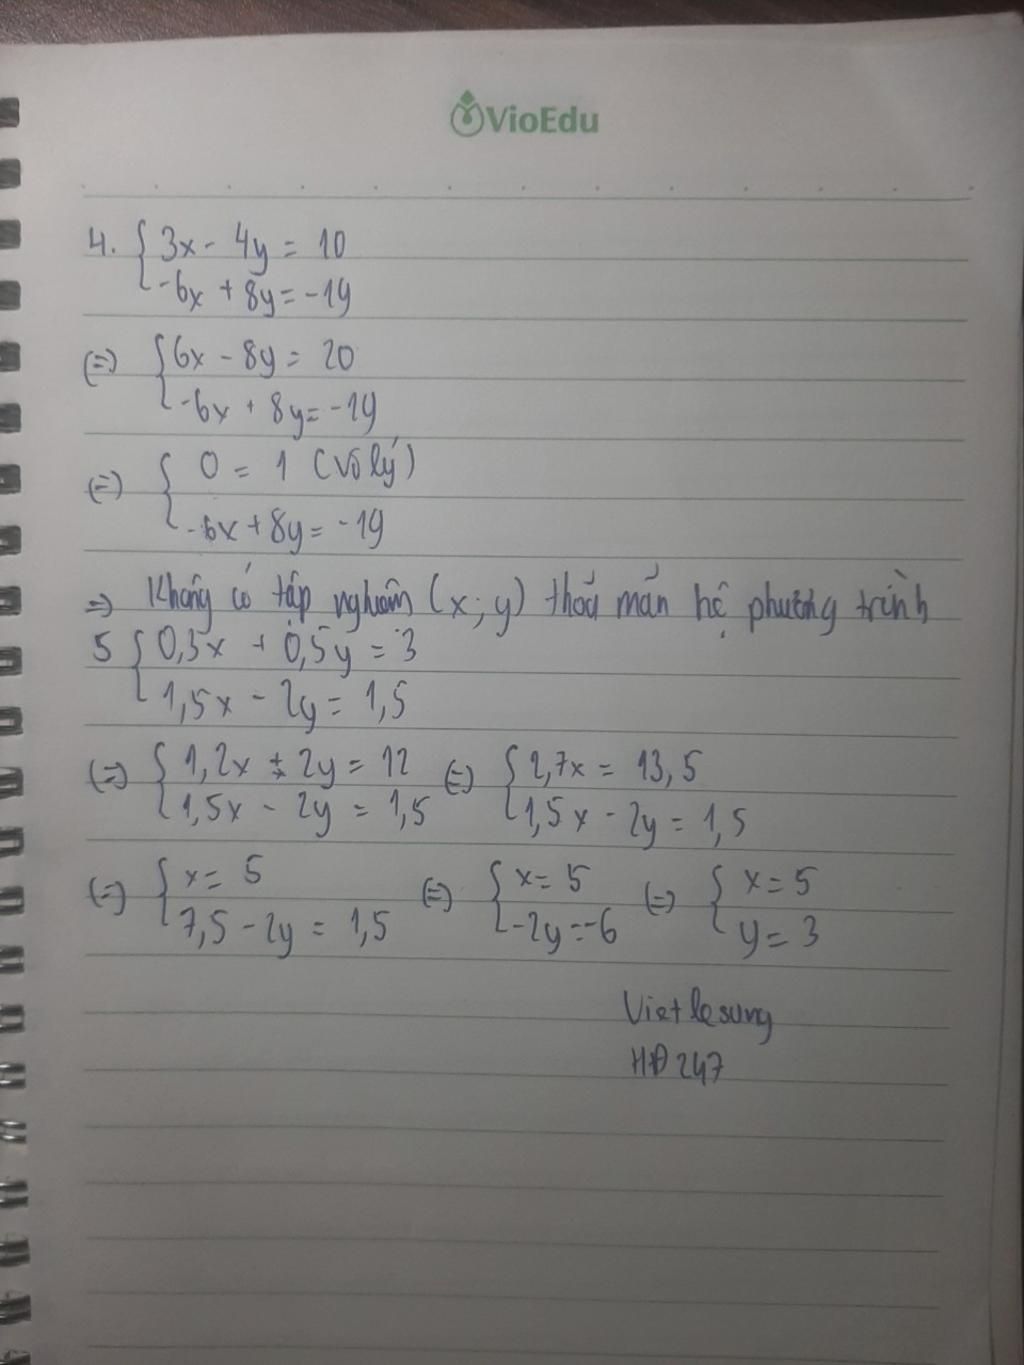 VioEdu
4. { 3x - 4y = 10
-6x + 8y = -19
(=) { 6x - 8y = 20
-6x + 8y = -19
(=) { 0 = 1 (vô lý)
-6x + 8y = -19
=> Không có tập nghiệm (x; y) thoả mãn hệ phương trình
5 { 0,3x + 0,5y = 3
1,5x - 2y = 1,5
(=) { 1,2x + 2y = 12 (=) { 2,7x = 13,5
1,5x - 2y = 1,5 1,5x - 2y = 1,5
(=) { x = 5 (=) { x = 5 (=) { x = 5
7,5 - 2y = 1,5 -2y = -6 y = 3
Vietlesung
HĐ247